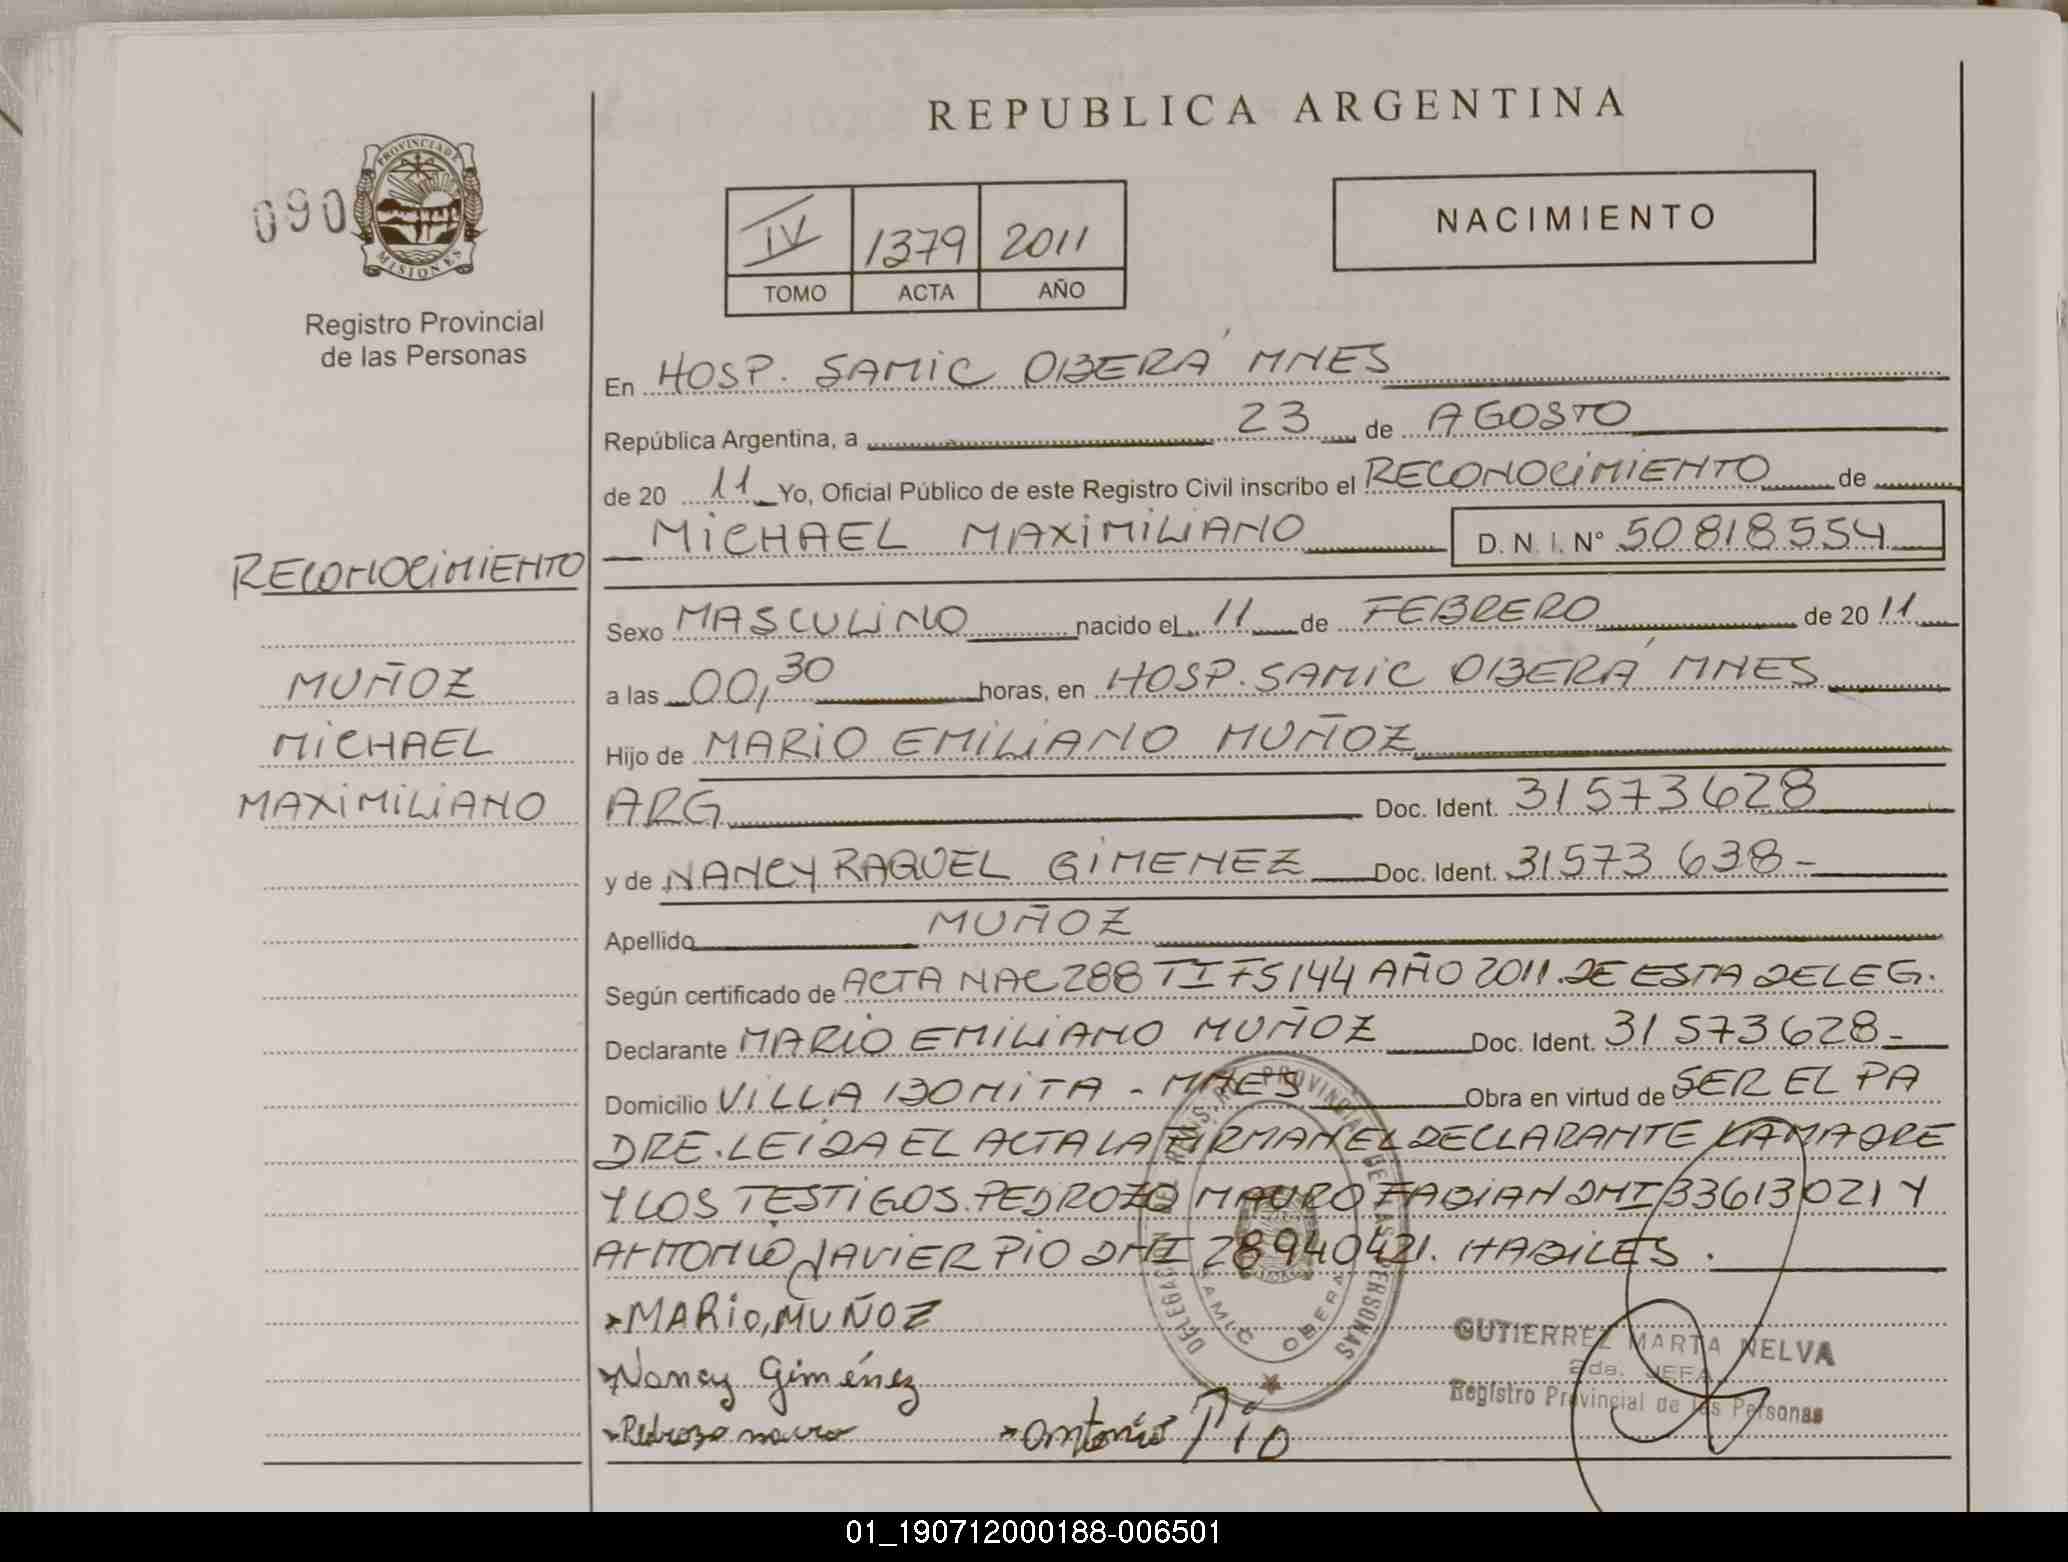 REPUBLICA ARGENTINA
090
PROVINCIA DE
MISIONES
Registro Provincial
de las Personas
IV 1379 2011
TOMO ACTA AÑO
NACIMIENTO
En HOSP. SAMIC OBERÁ MNES
República Argentina, a 23 de AGOSTO
de 20 11 Yo, Oficial Público de este Registro Civil inscribo el RECONOCIMIENTO de
MICHAEL MAXIMILIANO D. N. I. Nº 50818554
RECONOCIMIENTO
MUÑOZ
MICHAEL
MAXIMILIANO
Sexo MASCULINO nacido el 11 de FEBRERO de 20 11
a las 00,30 horas, en HOSP. SAMIC OBERÁ MNES
Hijo de MARIO EMILIANO MUÑOZ
ARG Doc. Ident. 31573628
y de NANCY RAQUEL GIMENEZ Doc. Ident. 31573638-
Apellido MUÑOZ
Según certificado de ACTA NAC 288 TI FS 144 AÑO 2011. DE ESTA DELEG.
Declarante MARIO EMILIANO MUÑOZ Doc. Ident. 31573628-
Domicilio VILLA BONITA - MNES Obra en virtud de SER EL PA
DRE. LEIDA EL ACTA LA FIRMAN EL DECLARANTE LA MADRE
Y LOS TESTIGOS. PEDROZO MAURO FABIAN DNI 33613021 Y
ANTONIO JAVIER PIO DNI 28940421. HABILES.
MARIO, MUÑOZ
Nancy Giménez
Pedrozo mauro antonio Pio
GUTIERREZ MARTA NELVA
2da. JEFA
Registro Provincial de las Personas
SAMIC OBERA
01_190712000188-006501